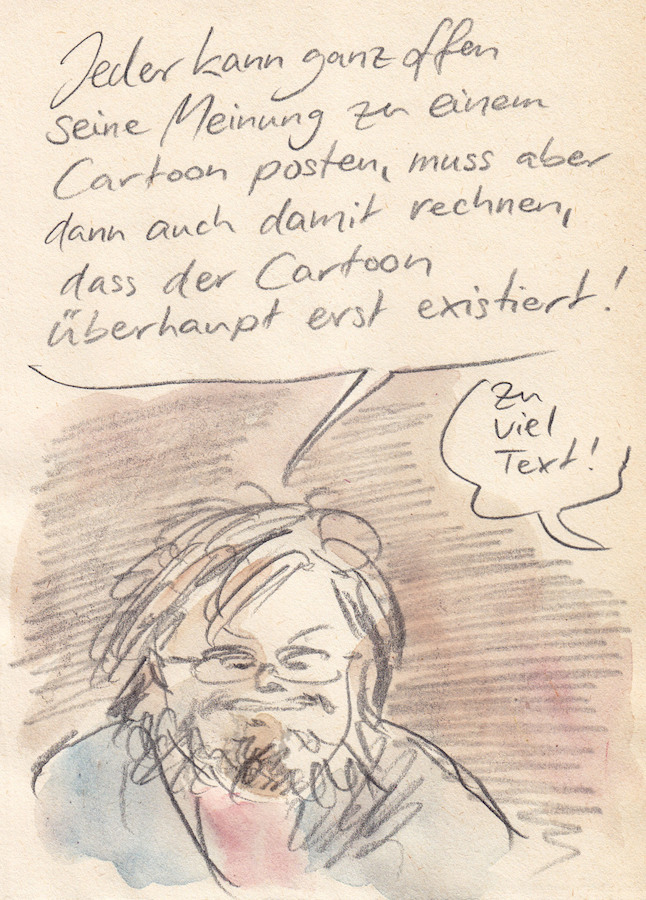 Jeder kann ganz offen
seine Meinung zu einem
Cartoon posten, muss aber
dann auch damit rechnen,
dass der Cartoon
überhaupt erst existiert!
Zu
viel
Text!